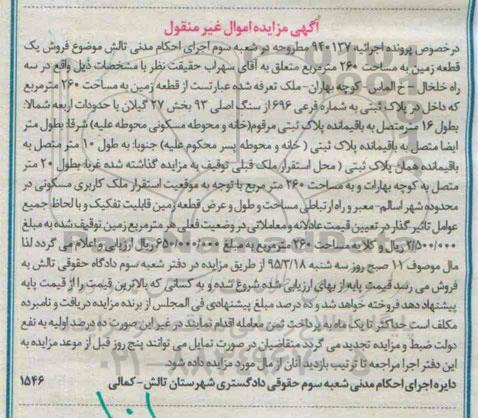 آگهی مزایده اموال غیر منقول
درخصوص پرونده اجرائیه ۹۴۰۱۳۷ مطروحه در شعبه سوم اجرای احکام مدنی تالش موضوع فروش یک
قطعه زمین به مساحت ۲۶۰ مترمربع متعلق به آقای سهراب حقیقت نظر با مشخصات ذیل واقع در سه
راه خلخال - خ الماس- کوچه بهاران- ملک تعرفه شده عبارتست از قطعه زمین به مساحت ۲۶۰ مترمربع
که داخل در پلاک ثبتی به شماره فرعی ۶۹۶ از سنگ اصلی ۹۳ بخش ۲۷ گیلان با حدودات اربعه شمالا:
بطول ۱۶ متر متصل به باقیمانده پلاک ثبتی مرقوم(خانه و محوطه مسکونی محوطه علیه) شرقا: بطول متر
ایضا متصل به باقیمانده پلاک ثبتی ( خانه و محوطه پسر محکوم علیه) جنوبا: به طول ۱۰ متر متصل به
باقیمانده همان پلاک ثبتی ( محل استقرار ملک قبلی توقیف به مزایده گذاشته شده غربا: بطول ۲۰ متر
متصل به کوچه بهارات و به مساحت ۲۶۰ متر مربع با توجه به موقعیت استقرار ملک کاربری مسکونی در
محدوده شهر اسالم- معبر و راه ارتباطی مساحت و طول و عرض قطعه زمین قابلیت تفکیک و با لحاظ جمیع
عوامل تاثیر گذار در تعیین قیمت عادلانه و معاملاتی در وضعیت فعلی هر مترمربع زمین توقیف شده به مبلغ
۲/۵۰۰/۰۰۰ریال و کلا به مساحت ۲۶۰ مترمربع به مبلغ ۶۵۰/۰۰۰/۰۰۰ ریال ارزیابی و اعلام می گردد لذا
مال موصوف ۱۱ صبح روز سه شنبه ۹۵/۳/۱۸ از طریق مزایده در دفتر شعبه سوم دادگاه حقوقی تالش به
فروش می رسد قیمت پایه از بهای ارزیابی شده شروع شده و به کسانی که بالاترین قیمت را از قیمت پایه
پیشنهاد دهد فروخته خواهد شد و ده درصد مبلغ پیشنهادی فی المجلس از برنده مزایده دریافت و نامبرده
مکلف است حداکثر تا یک ماه به پرداخت ثمن معامله اقدام نمایند در غیر این صورت ده درصد اولیه به نفع
دولت ضبط و مزایده تجدید می گردد متقاضیان در صورت تمایل می توانند پنج روز قبل از موعد مزایده به
این دفتر اجرا مراجعه تا ترتیب بازدید آنان از مال مورد مزایده داده شود
دایره اجرای احکام مدنی شعبه سوم حقوقی دادگستری شهرستان تالش - کمالی ۱۵۴۶